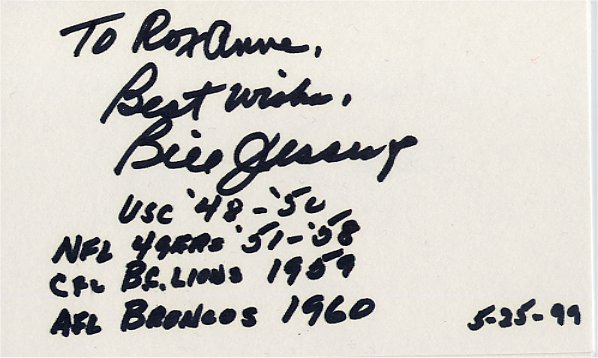 To RoxAnne,
Best Wishes,
Bill Jessup
USC '48-'50
NFL 49ERS '51-'58
CFL B.C. LIONS 1959
AFL BRONCOS 1960
5-25-99